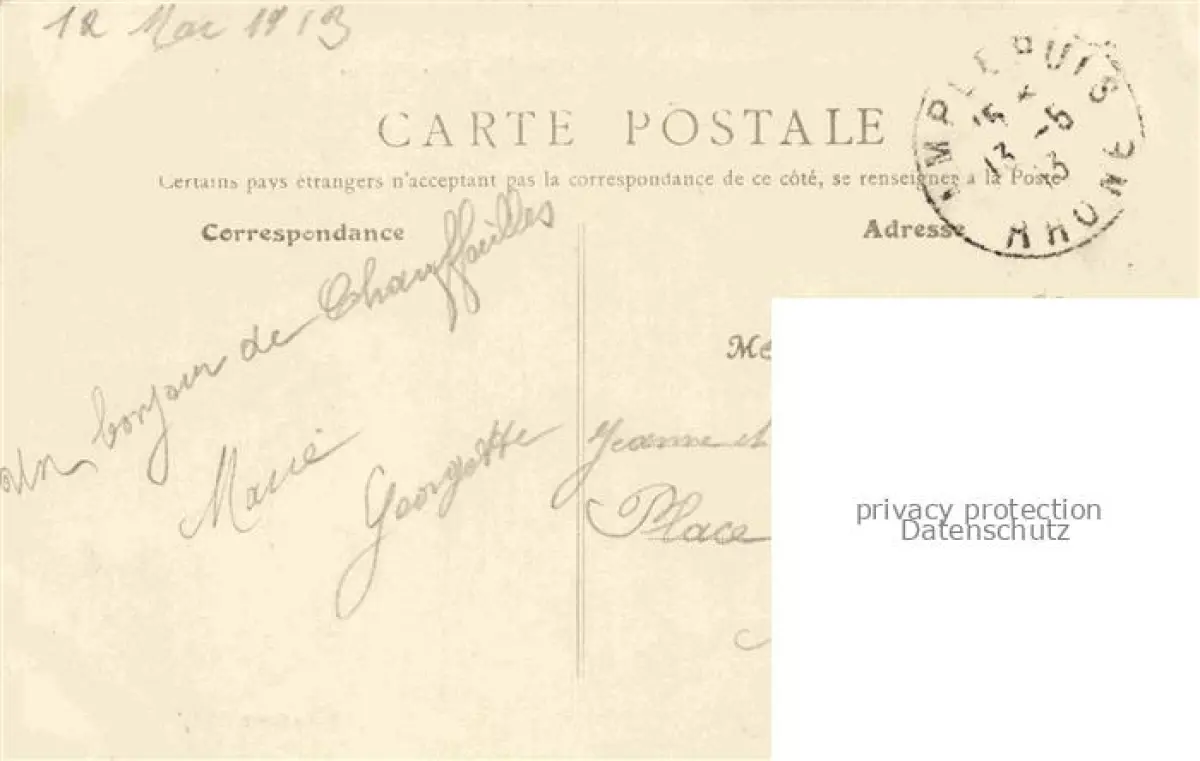 12 Mai 1913
CARTE POSTALE
Certains pays étrangers n'acceptant pas la correspondance de ce côté, se renseigner à la Poste
Correspondance
Adresse
AMPLEPUIS
15
13 -5
13
RHONE
Un bonjour de Chauffailles
Marie
Georgette
Jeanne et
Place
privacy protection
Datenschutz